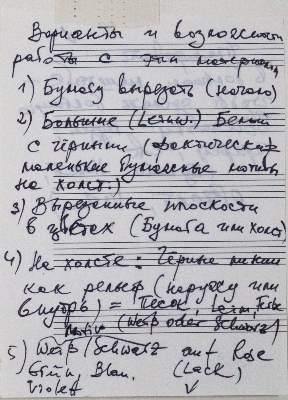 Варианты и возможности
работы с этим материал
1) Бумагу вырезать (ногою)
2) Большие (Leinw.) Белый
с чёрным (фактически
маленькие бумажные
на холст.)
3) Вырезанные плоскости
в цветах (Бумага или холст)
4) На холсте: Чёрные линии
как рельеф (наружу или
внутрь) = Песок, Leim, Farbe
(Weiß oder Schwarz)
5) Weiß/Schwarz auf Rose
Grün, Blau, (Lack)
Violett